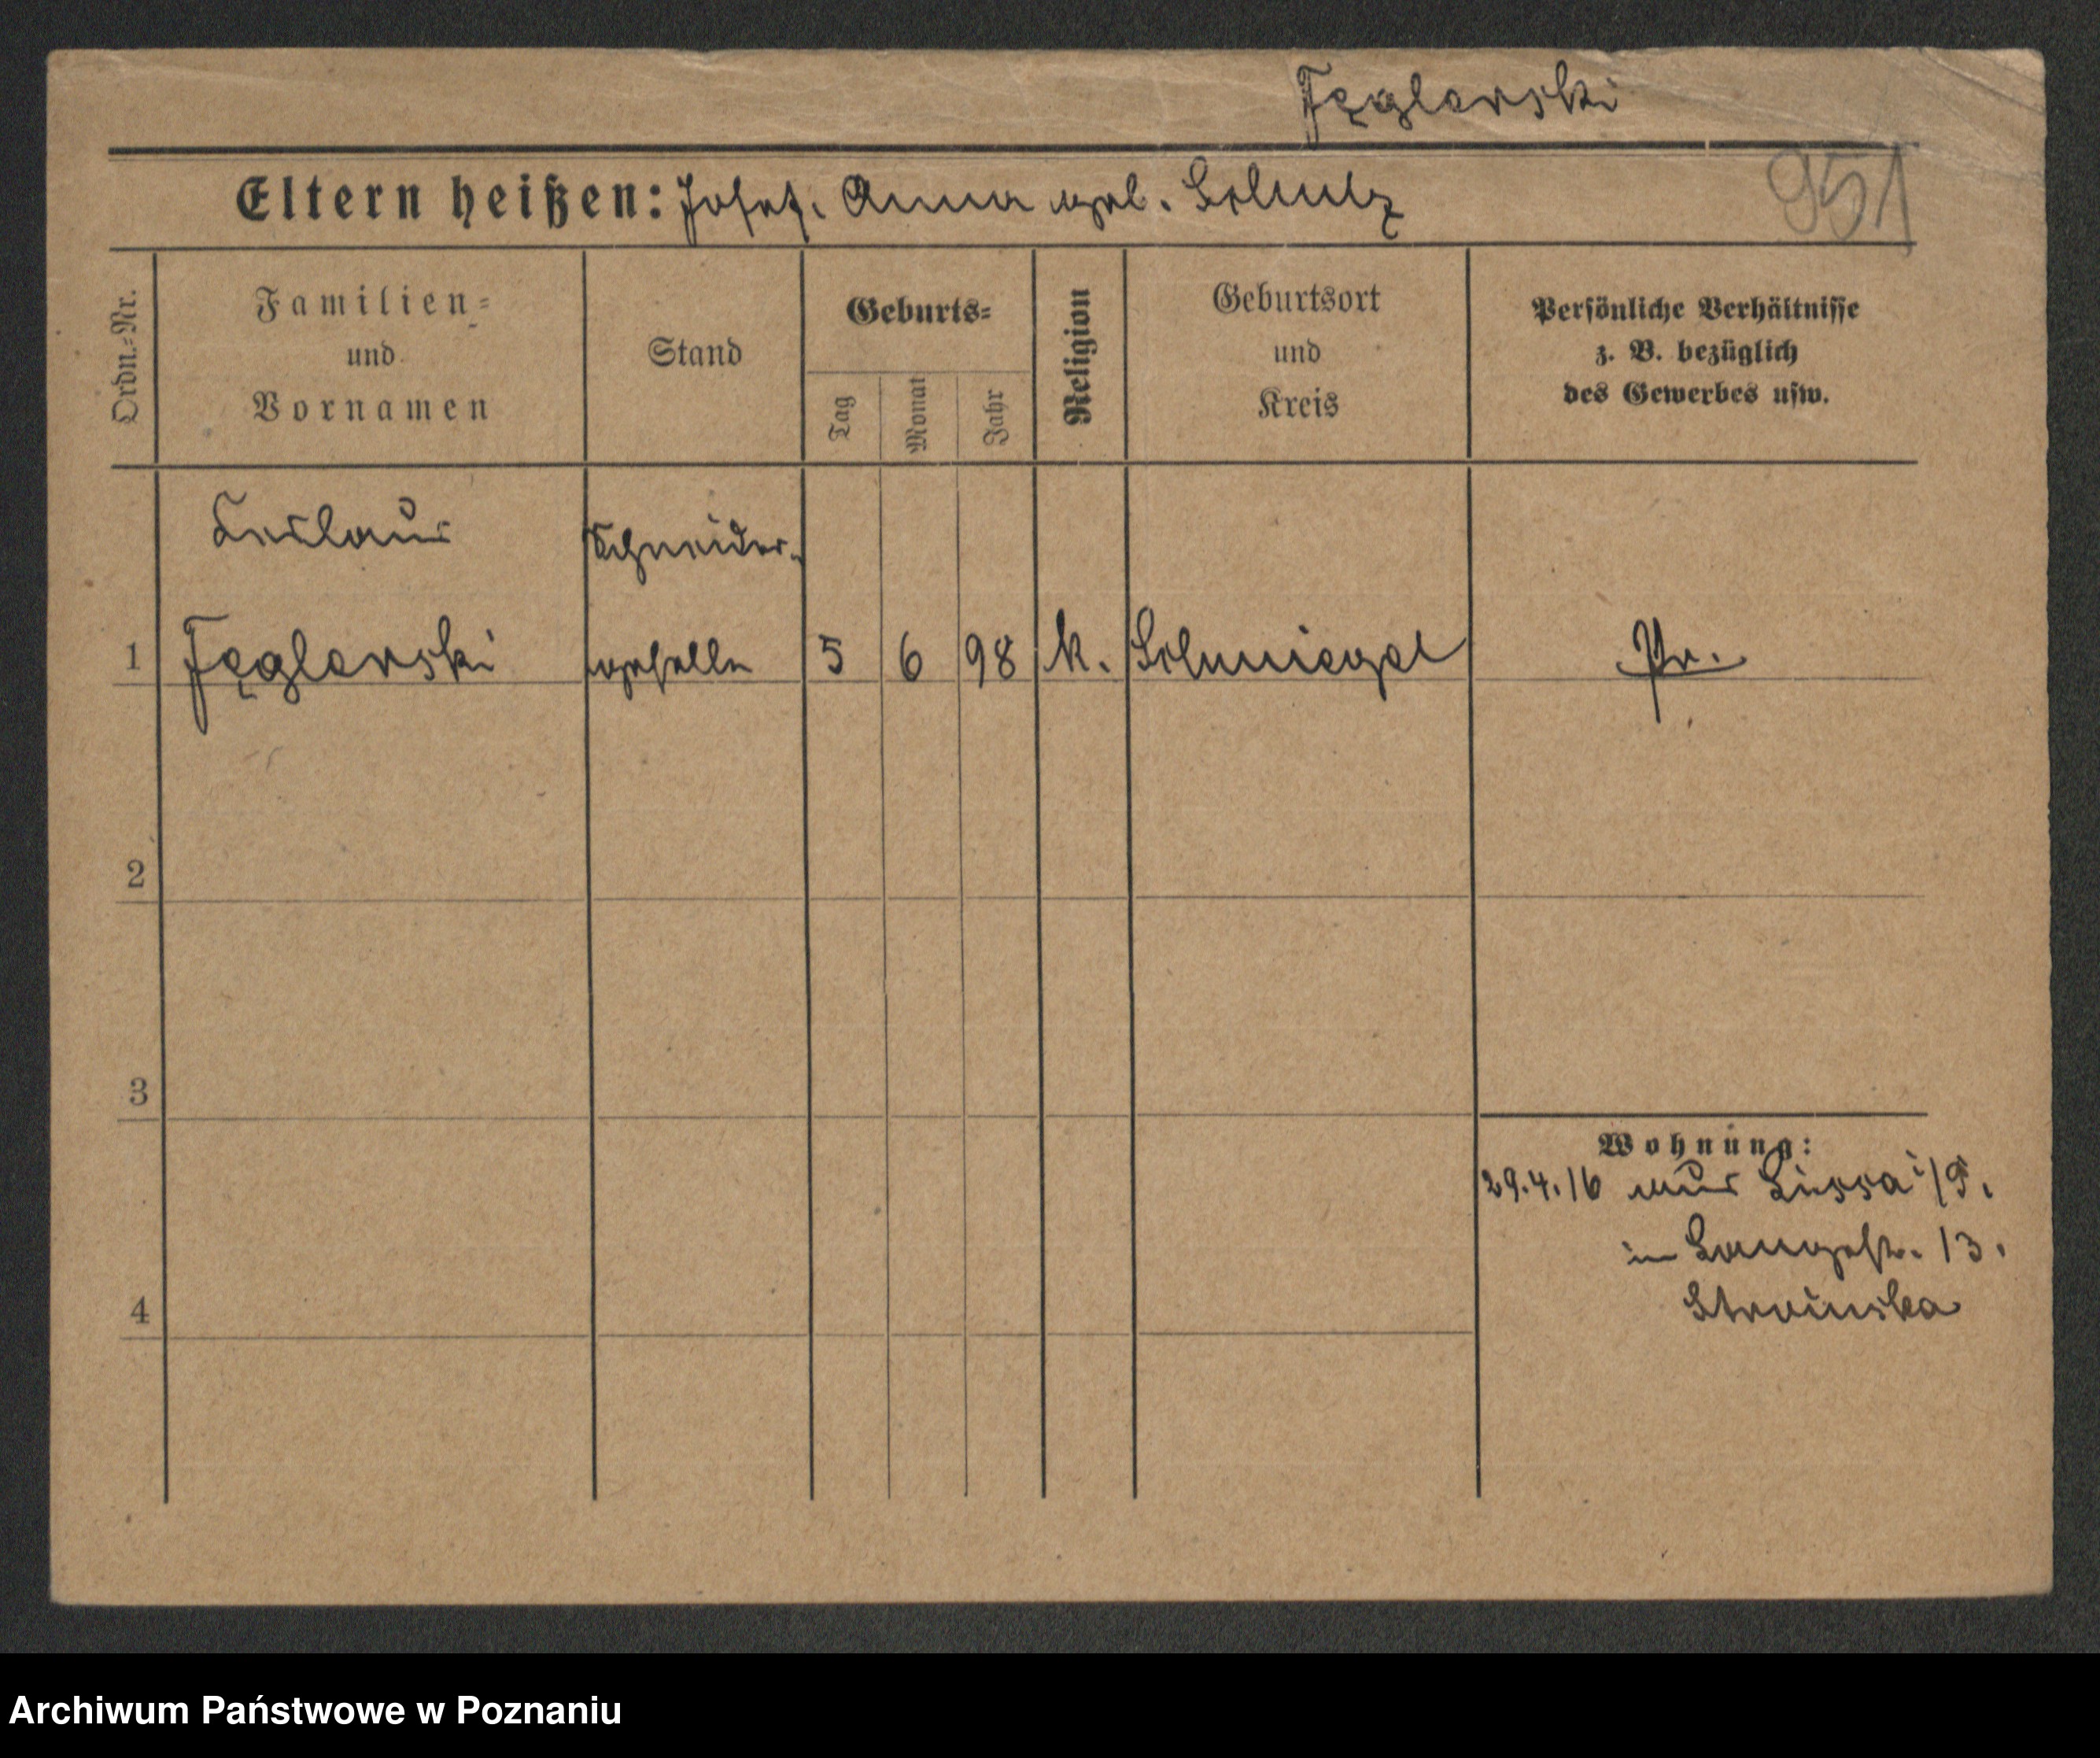 Fęglerski
951
Eltern heißen: Josef. Anna geb. Schulz
Ordn.=Nr.
Familien=
und
Vornamen
Stand
Geburts=
Tag
Monat
Jahr
Religion
Geburtsort
und
Kreis
Persönliche Verhältnisse
z. B. bezüglich
des Gewerbes usw.
Schneider-
1 Fęglerski geselle 5 6 98 k. Schmiegel Pr.
2
3
4
Wohnung:
29.4.16 aus Lissa i/P.
in Langestr. 13.
Stroinska
Archiwum Państwowe w Poznaniu